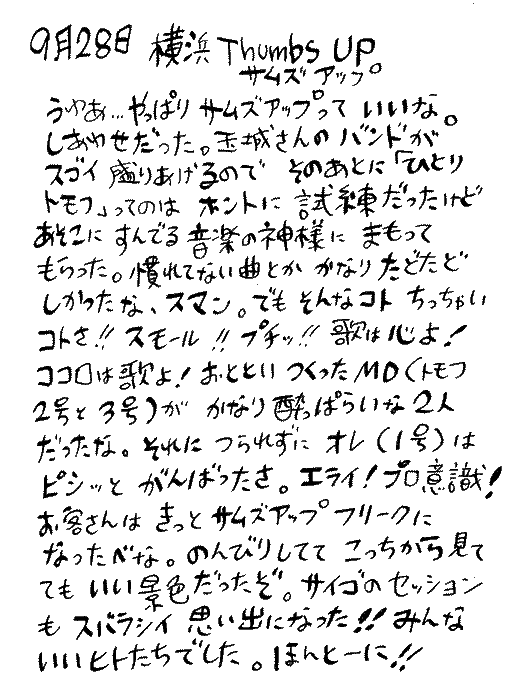 9月28日 横浜 Thumbs UP
サムズアップ
うわぁ…やっぱり サムズアップって いいな。
しあわせだった。玉城さんの バンドが
スゴイ 盛りあげるので そのあとに「ひとり
トモフ」ってのは ホントに 試練だったけど
あそこに すんでる 音楽の神様に まもって
もらった。慣れてない曲とか かなり たどたど
しかったな、スマン。でも そんなコト ちっちゃい
コトさ!! スモール!! プチッ!! 歌は心よ!
ココロは歌よ! おととい つくった MD(トモフ
2号と3号)が かなり 酔っぱらいな 2人
だったな。それに つられずに オレ(1号)は
ピシッと がんばったさ。エライ! プロ意識!
お客さんは きっと サムズアップ フリークに
なったべな。のんびりしてて こっちから見て
ても いい景色だったぞ。サイゴの セッション
も スバラシイ 思い出になった!! みんな
いいヒトたちでした。ほんとーに!!